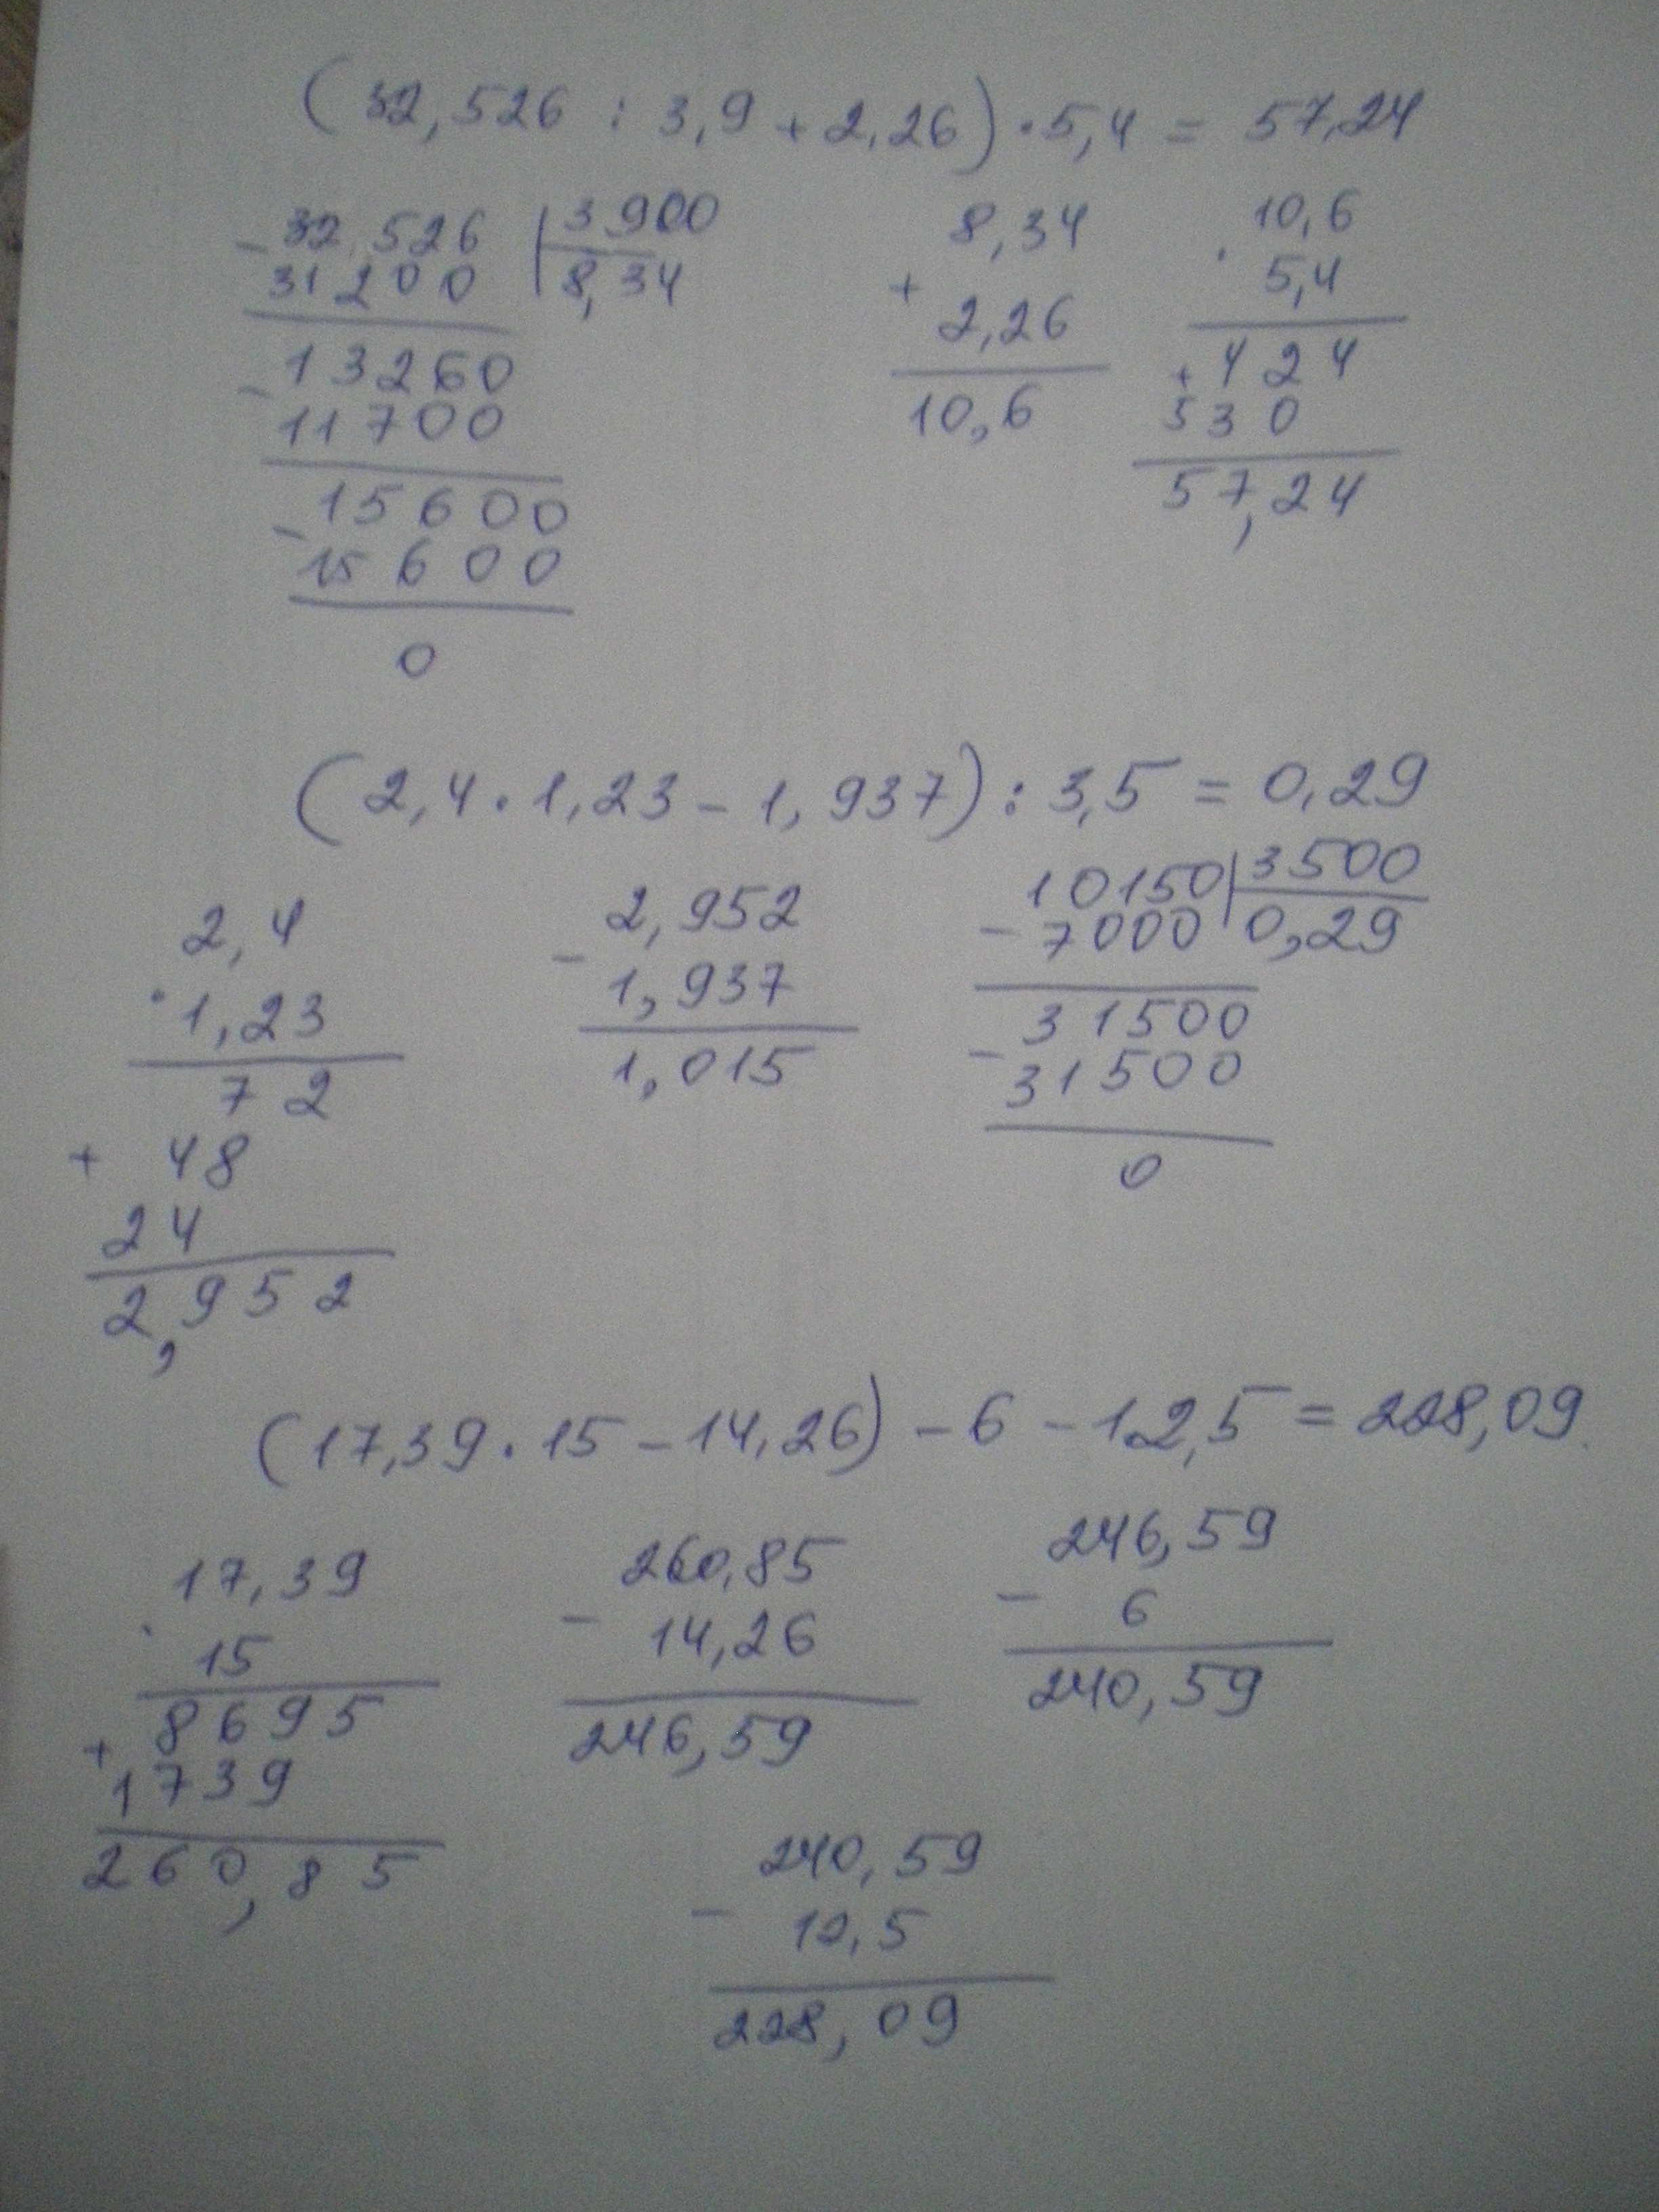 (32,526 : 3,9 + 2,26) · 5,4 = 57,24
- 32,526 | 3900
31200 | 8,34
- 13260
11700
- 15600
15600
0
8,34
+
2,26
10,6
10,6
·
5,4
+ 424
530
57,24
(2,4 · 1,23 - 1,937) : 3,5 = 0,29
2,4
· 1,23
72
+ 48
24
2,952
2,952
-
1,937
1,015
10150 | 3500
- 7000 | 0,29
31500
- 31500
0
(17,39 · 15 - 14,26) - 6 - 12,5 = 228,09
17,39
·
15
8695
+
1739
260,85
260,85
-
14,26
246,59
246,59
- 6
240,59
240,59
- 12,5
228,09